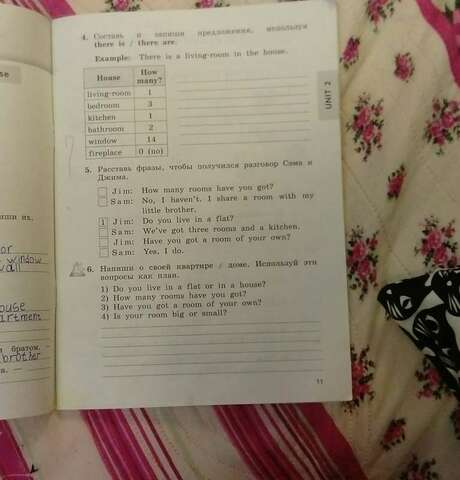 se
аши их.
or
window
wall
ouse
artment
и братом. –
brother
а. –
4. Составь и запиши предложения, используя
there is / there are.
Example: There is a living-room in the house.
House How many?
living-room 1
bedroom 3
kitchen 1
bathroom 2
window 14
fireplace 0 (no)
UNIT 2
5. Расставь фразы, чтобы получился разговор Сэма и
Джима.
Jim: How many rooms have you got?
Sam: No, I haven't. I share a room with my
little brother.
1 Jim: Do you live in a flat?
Sam: We've got three rooms and a kitchen.
Jim: Have you got a room of your own?
Sam: Yes, I do.
6. Напиши о своей квартире / доме. Используй эти
вопросы как план.
1) Do you live in a flat or in a house?
2) How many rooms have you got?
3) Have you got a room of your own?
4) Is your room big or small?
11